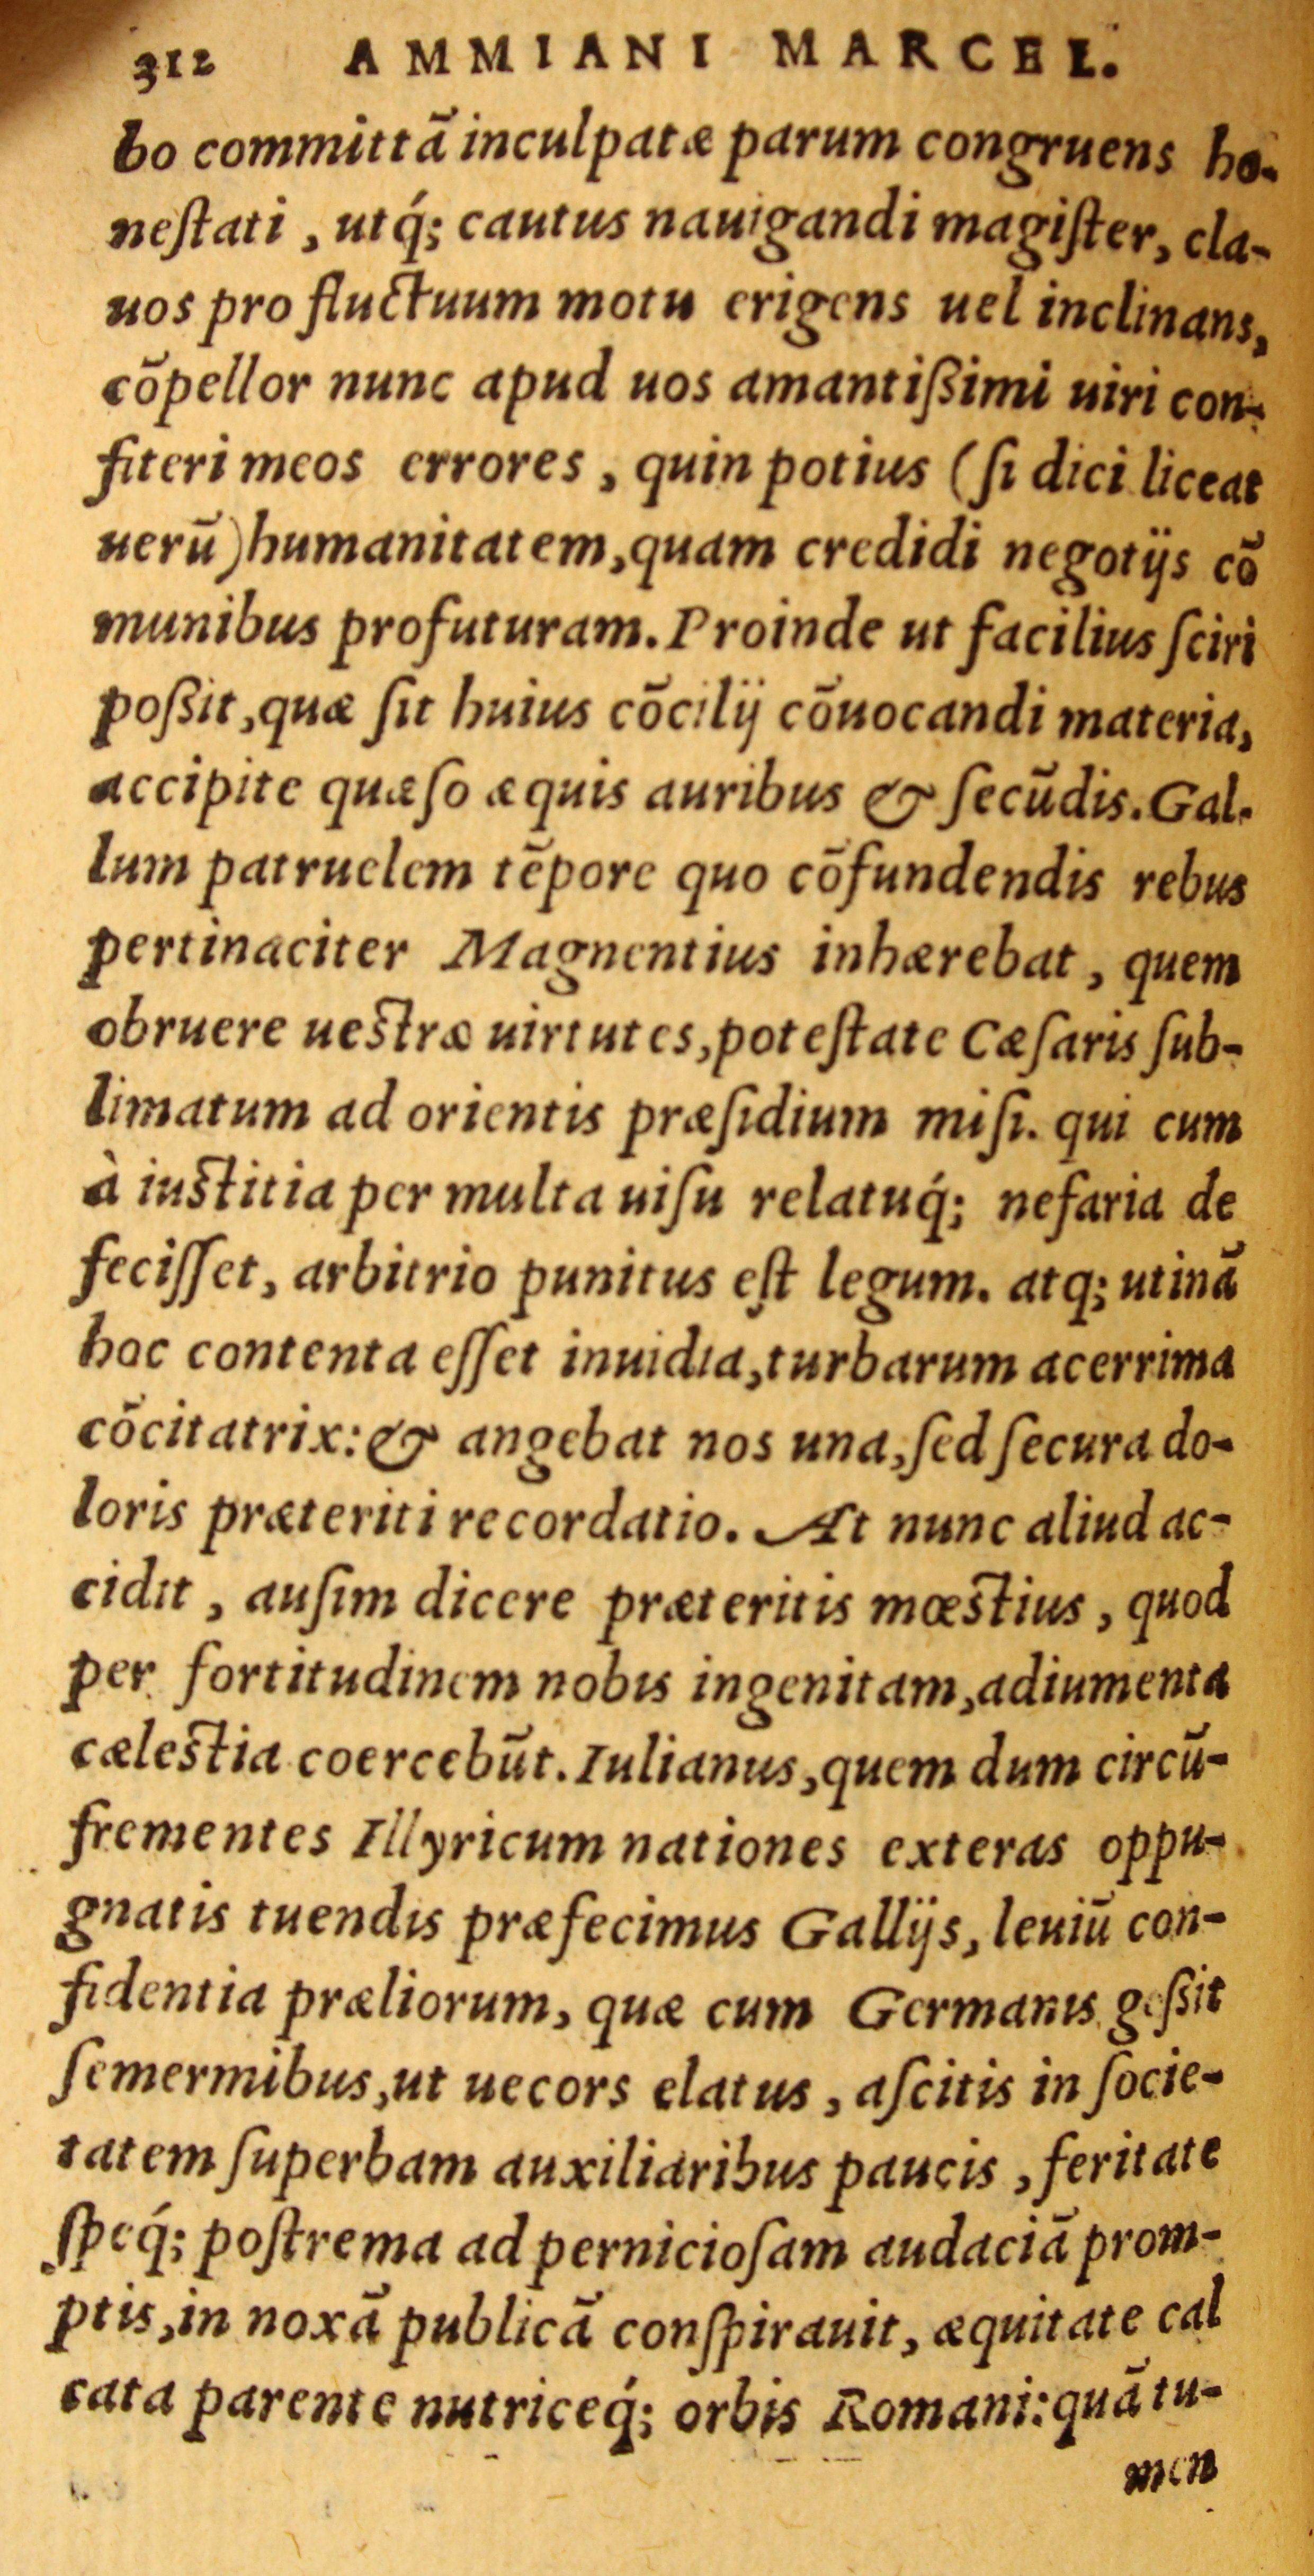 312 AMMIANI MARCEL.
bo committã inculpatæ parum congruens ho-
neſtati, utq́; cautus nauigandi magiſter, cla-
uos pro fluctuum motu erigens uel inclinans,
cõpellor nunc apud uos amantißimi uiri con-
fiteri meos errores, quin potius (ſi dici liceat
uerũ) humanitatem, quam credidi negotijs cõ
munibus profuturam. Proinde ut facilius ſciri
poßit, quæ ſit huius cõcilij cõuocandi materia,
accipite quæſo æquis auribus & ſecũdis. Gal-
lum patruelem tẽpore quo cõfundendis rebus
pertinaciter Magnentius inhærebat, quem
obruere ueſtræ uirtutes, poteſtate Cæſaris ſub-
limatum ad orientis præſidium miſi. qui cum
à iuſtitia per multa uiſu relatuq́; nefaria de
feciſſet, arbitrio punitus eſt legum. atq; utinã
hoc contenta eſſet inuidia, turbarum acerrima
cõcitatrix: & angebat nos una, ſed ſecura do-
loris præteriti recordatio. At nunc aliud ac-
cidit, auſim dicere præteritis mœſtius, quod
per fortitudinem nobis ingenitam, adiumenta
cæleſtia coercebũt. Iulianus, quem dum circũ-
frementes Illyricum nationes exteras oppu-
gnatis tuendis præfecimus Gallijs, leuiũ con-
fidentia præliorum, quæ cum Germanis geßit
ſemermibus, ut uecors elatus, aſcitis in ſocie-
tatem ſuperbam auxiliaribus paucis, feritate
ſpeq́; poſtrema ad pernicioſam audaciã prom-
ptis, in noxã publicã conſpirauit, æquitate cal
cata parente nutriceq́; orbis Romani: quã tu-
men